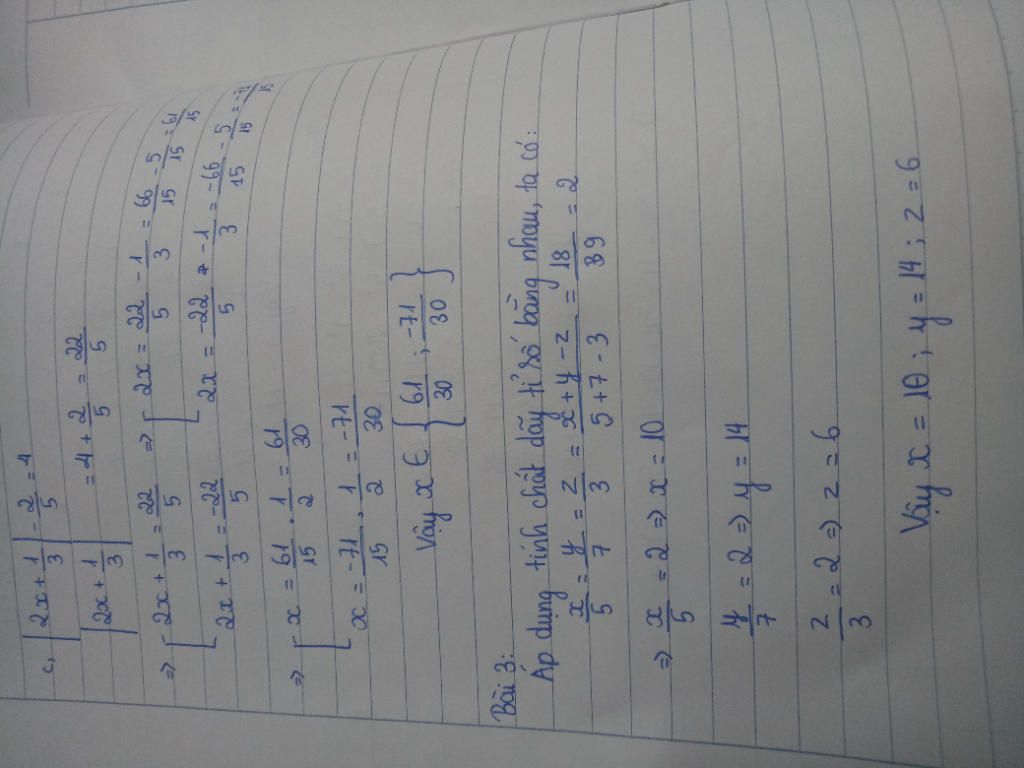 c, |2x + 1/3| - 2/5 = 4
|2x + 1/3| = 4 + 2/5 = 22/5
=> [ 2x + 1/3 = 22/5 => [ 2x = 22/5 - 1/3 = 66/15 - 5/15 = 61/15
2x + 1/3 = -22/5 2x = -22/5 - 1/3 = -66/15 - 5/15 = -71/15
=> [ x = 61/15 . 1/2 = 61/30
x = -71/15 . 1/2 = -71/30
Vậy x ∈ { 61/30 ; -71/30 }
Bài 3:
Áp dụng tính chất dãy tỉ số bằng nhau, ta có:
x/5 = y/7 = z/3 = x + y - z / 5 + 7 - 3 = 18/39 = 2
=> x/5 = 2 => x = 10
y/7 = 2 => y = 14
z/3 = 2 => z = 6
Vậy x = 10 ; y = 14 ; z = 6